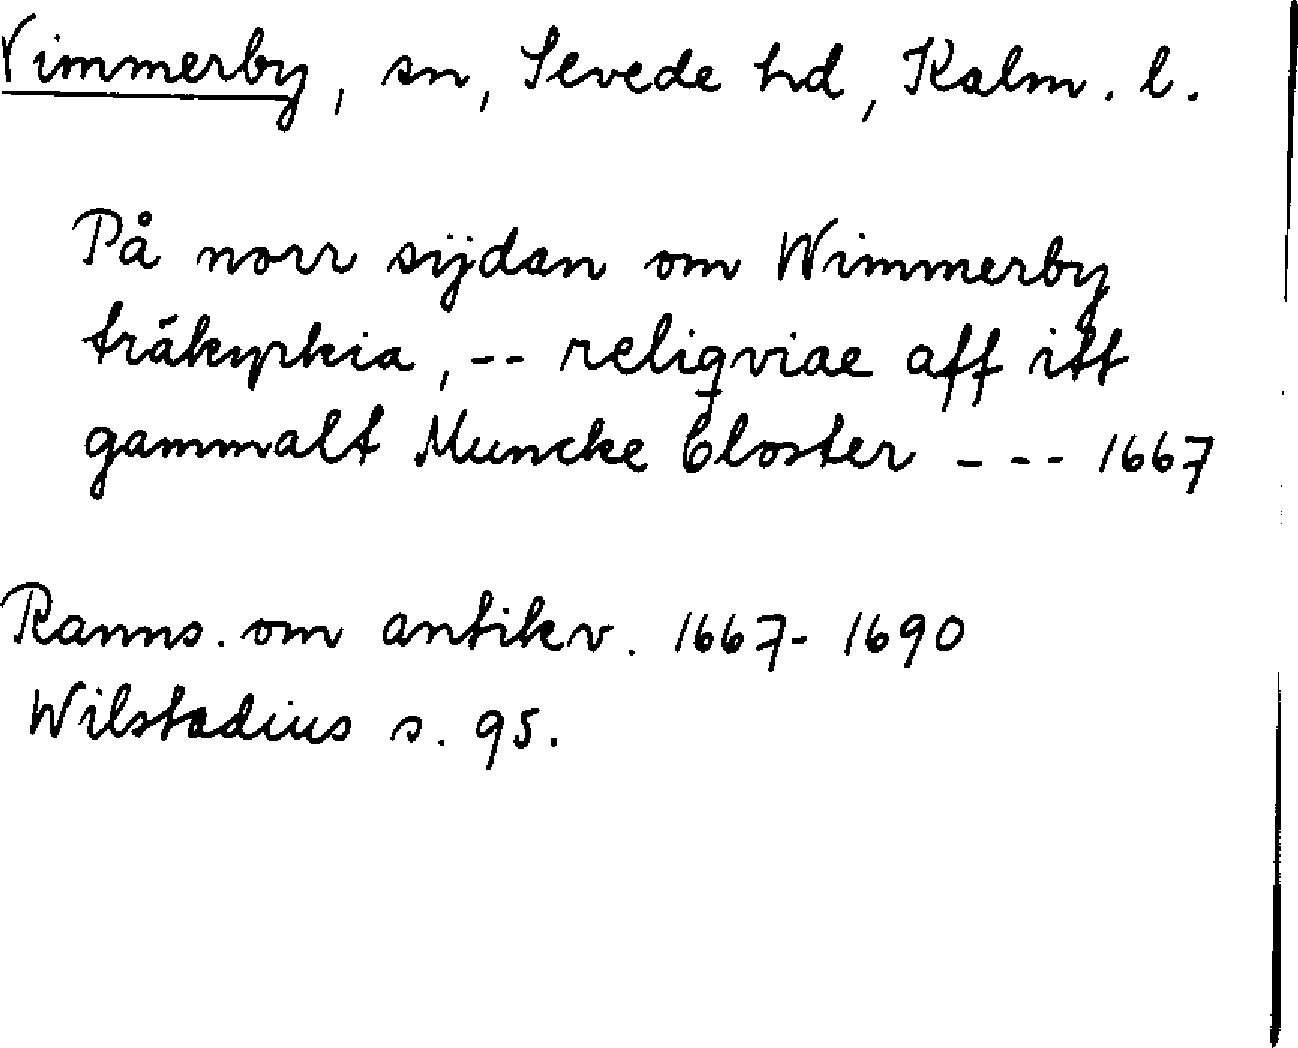 Vimmerby, sn, Sevede hd, Kalm. l.
På norr sijdan om Wimmerby
träkyrkia, -- reliqviae aff itt
gammalt Muncke Closter --- 1667
Ranns. om antikv. 1667-1690
Wilstadius s. 95.